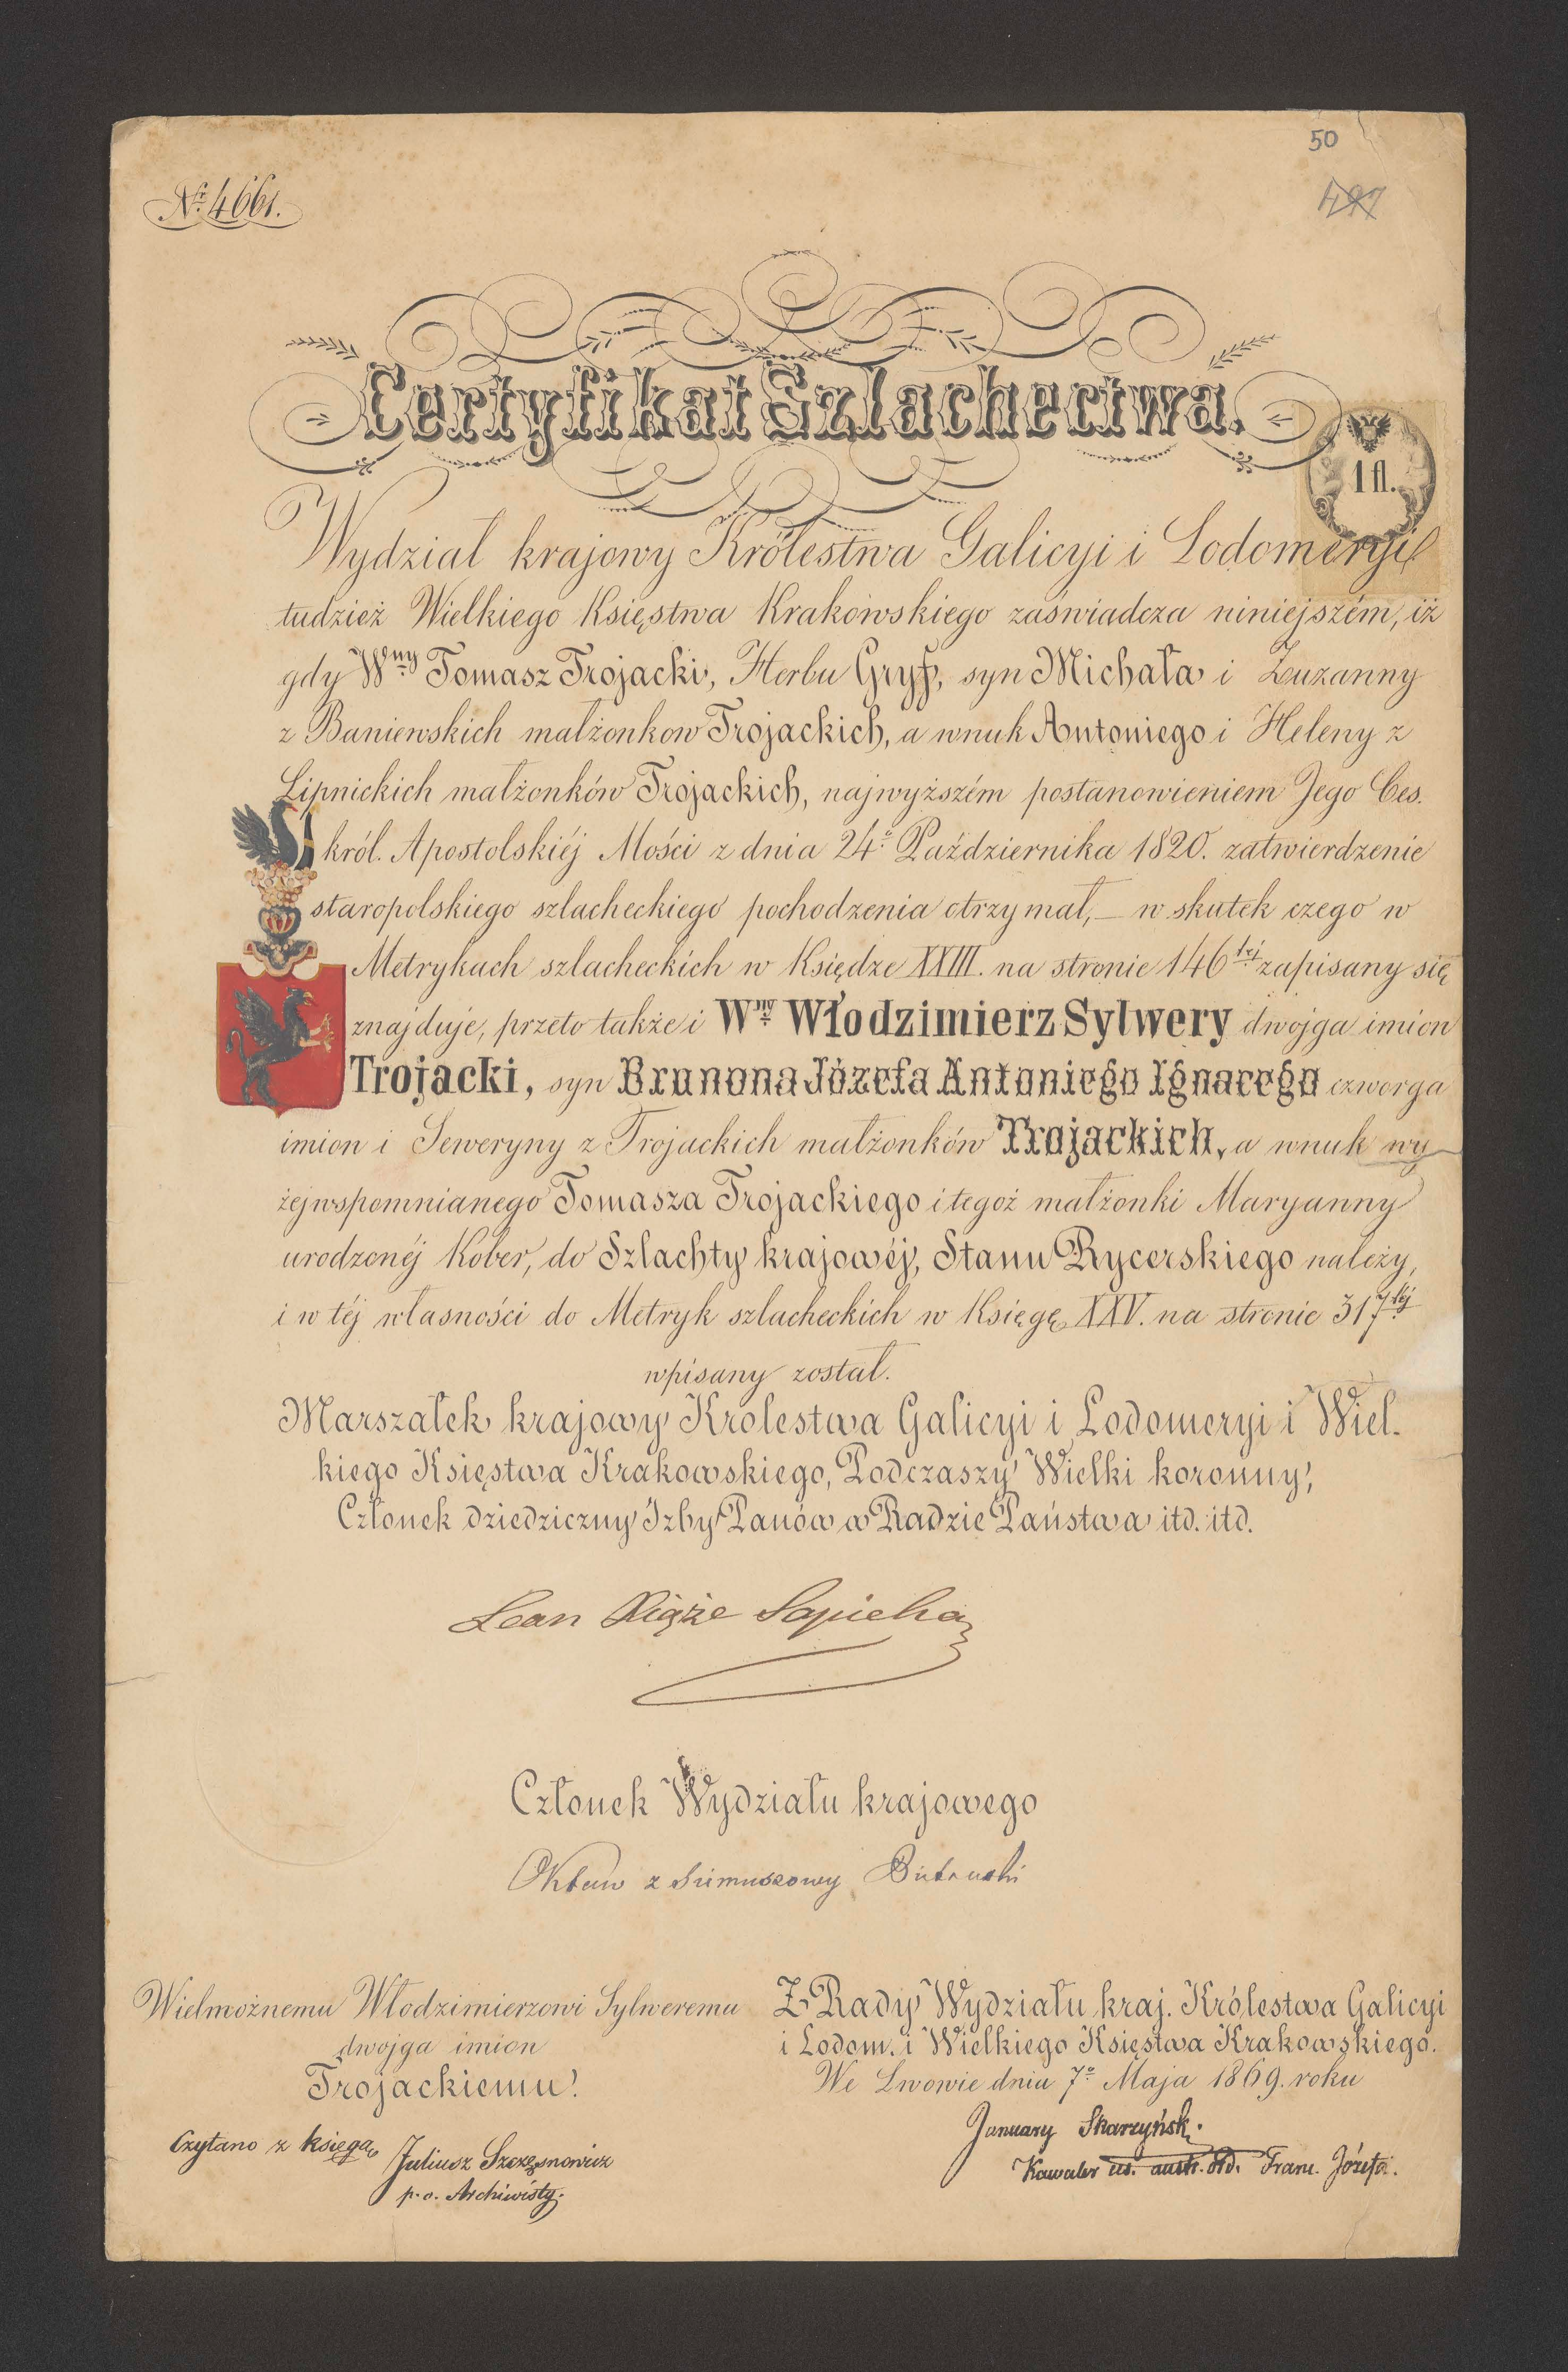 50
497
Nr. 4661.
Certyfikat Szlachectwa.
1 fl.
Wydział krajowy Królestwa Galicyi i Lodomeryi
tudzież Wielkiego Księstwa Krakowskiego zaświadcza niniejszém, iż
gdy Wny Tomasz Trojacki, Herbu Gryf, syn Michała i Zuzanny
z Baniewskich małżonkow Trojackich, a wnuk Antoniego i Heleny z
Lipnickich małżonków Trojackich, najwyższém postanowieniem Jego Ces.
król. Apostolskiéj Mości z dnia 24o Października 1820. zatwierdzenie
staropolskiego szlacheckiego pochodzenia otrzymał, — w skutek czego w
Metrykach szlacheckich w Księdze XXIII. na stronie 146téj zapisany się
znajduje, przeto także i Wny Włodzimierz Sylwery dwojga imion
Trojacki, syn Brunona Józefa Antoniego Ignacego czworga
imion i Seweryny z Trojackich małżonków Trojackich, a wnuk wy
żejwspomnianego Tomasza Trojackiego i tegoż małżonki Maryanny
urodzonéj Kober, do Szlachty krajowéj, Stanu Rycerskiego należy,
i w téj własności do Metryk szlacheckich w Księgę XXV. na stronie 317téj
wpisany został.
Marszałek krajowy Krolestwa Galicyi i Lodomeryi i Wiel-
kiego Księstwa Krakowskiego, Podczaszy Wielki koronny,
Członek dziedziczny Izby Panów w Radzie Państwa itd. itd.
Leon Xiąże Sapieha
Członek Wydziału krajowego
Oktaw z Pietruski
Wielmożnemu Włodzimierzowi Sylweremu
dwojga imion
Trojackiemu!
Czytano z księgą
Juliusz Szczęsnowicz
p. o. Archiwisty.
Z Rady Wydziału kraj. Królestwa Galicyi
i Lodom. i Wielkiego Księstwa Krakowskiego.
We Lwowie dnia 7o Maja 1869. roku
January Skarzyński
Kawaler ces. austr. Ord. Franc. Józefa.